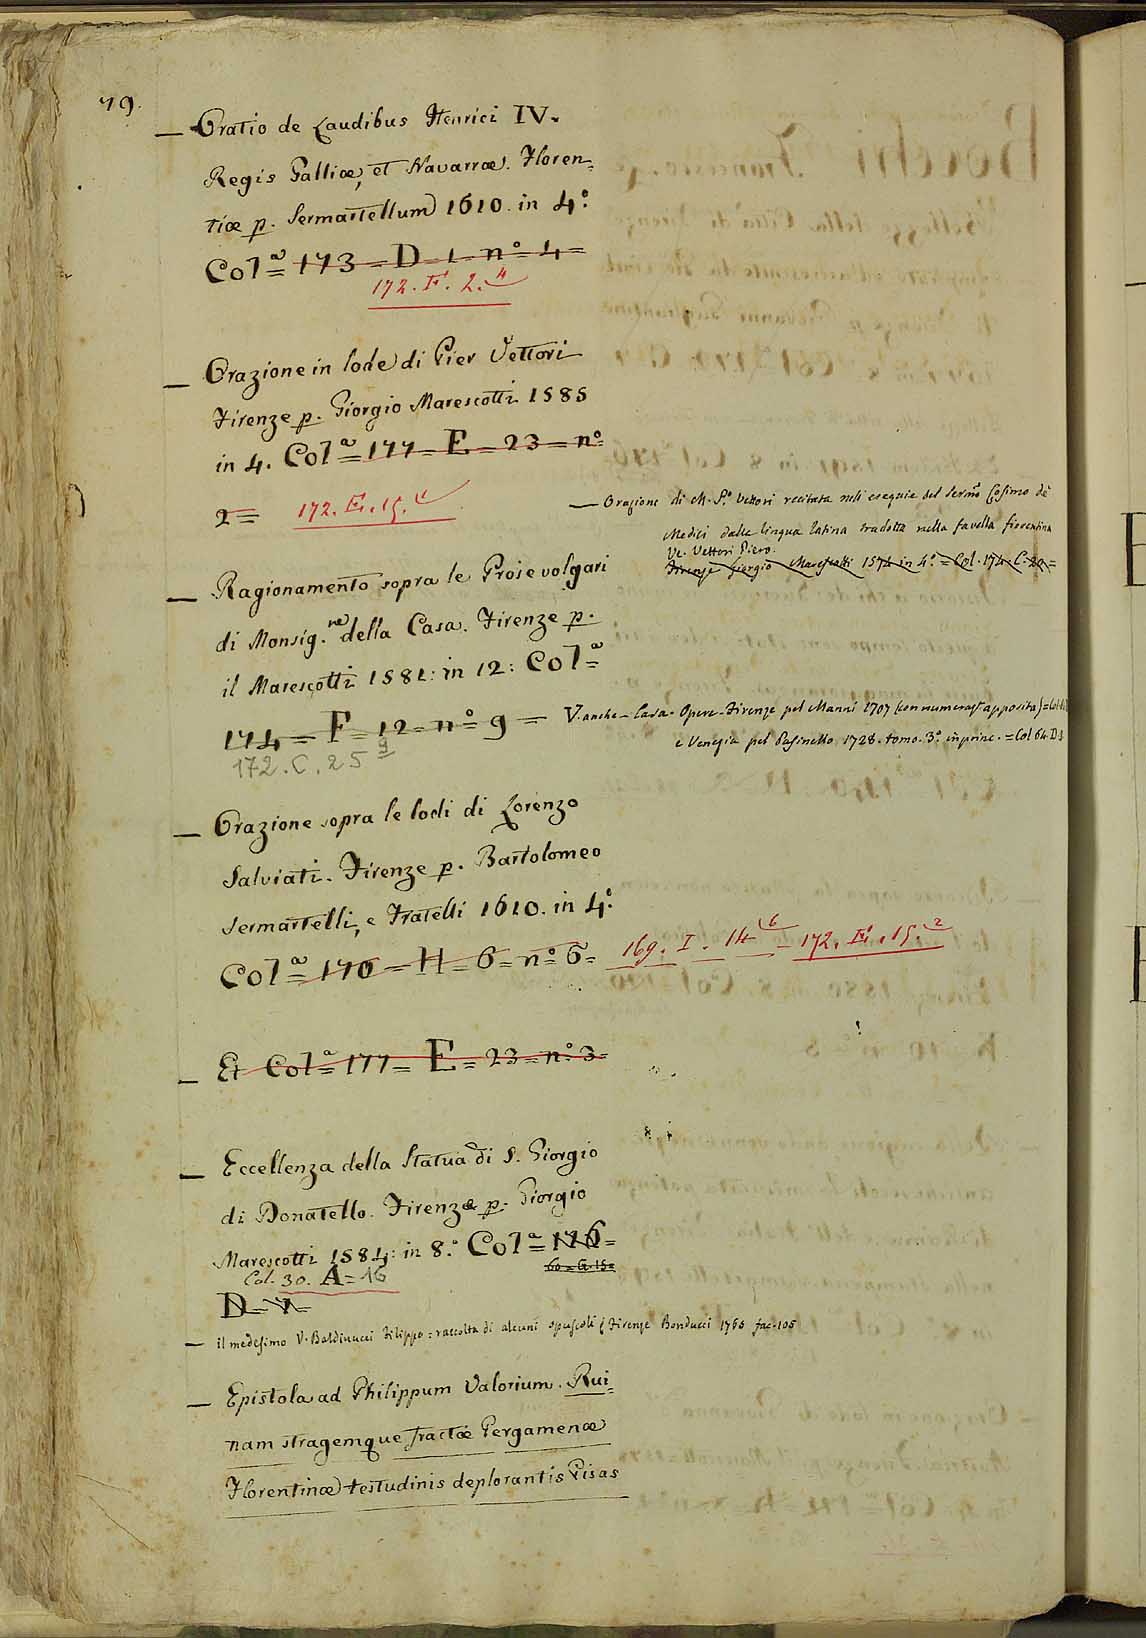 79.
— Oratio de Laudibus Henrici IV.
Regis Galliæ, et Navarræ. Floren=
tiæ p. Sermartellum 1610. in 4.º
Colª= 173 = D = 1 = nº 4 =
172. E. 2. 4
— Orazione in lode di Pier Vettori
Firenze p. Giorgio Marescotti 1585
in 4. Colª= 177 = E = 23 = nº
2 = 172. E. 15. 1
— Orazione di M. Pº Vettori recitata nell esequie del Sermo Cosimo de
Medici dalla lingua latina tradotta nella favella fiorentina
Ve. Vettori Piero.
Firenze Giorgio Marescotti 1574 in 4º. = Col. 174. C. 20 =
— Ragionamento sopra le Prose volgari
di Monsig.ne della Casa. Firenze p.
il Marescotti 1581: in 12: Colª=
174 = F = 12 = nº 9 = V. anche = Casa = Opere. Firenze pel Manni 1707 (con numeraz. apposita) = Col
e Venezia pel Pasinello 1728. tomo. 3º. in princ. = Col 64. D.
172. C. 25 9
— Orazione sopra le lodi di Lorenzo
Salviati. Firenze p. Bartolomeo
Sermartelli, e Fratelli 1610. in 4º.
Colª= 170 = H = 6 = nº 6 = 169. I. 14 6 — 172. E. 15. 2
— Et Colª= 177 = E = 23 = nº 3 =
— Eccellenza della Statua di S. Giorgio
di Donatello. Firenze p. Giorgio
Marescotti 1584: in 8.º Colª= 176 =
60 = G. 15 =
Col. 30. A = 16
D = 7 =
— il medesimo V. Baldinucci Filippo = raccolta di alcuni opuscoli Firenze Bonducci 1765 fac. 105
— Epistola ad Philippum Valorium. Rui=
nam stragemque fractæ Pergamenæ
Florentinæ testudinis deplorantis Pisas